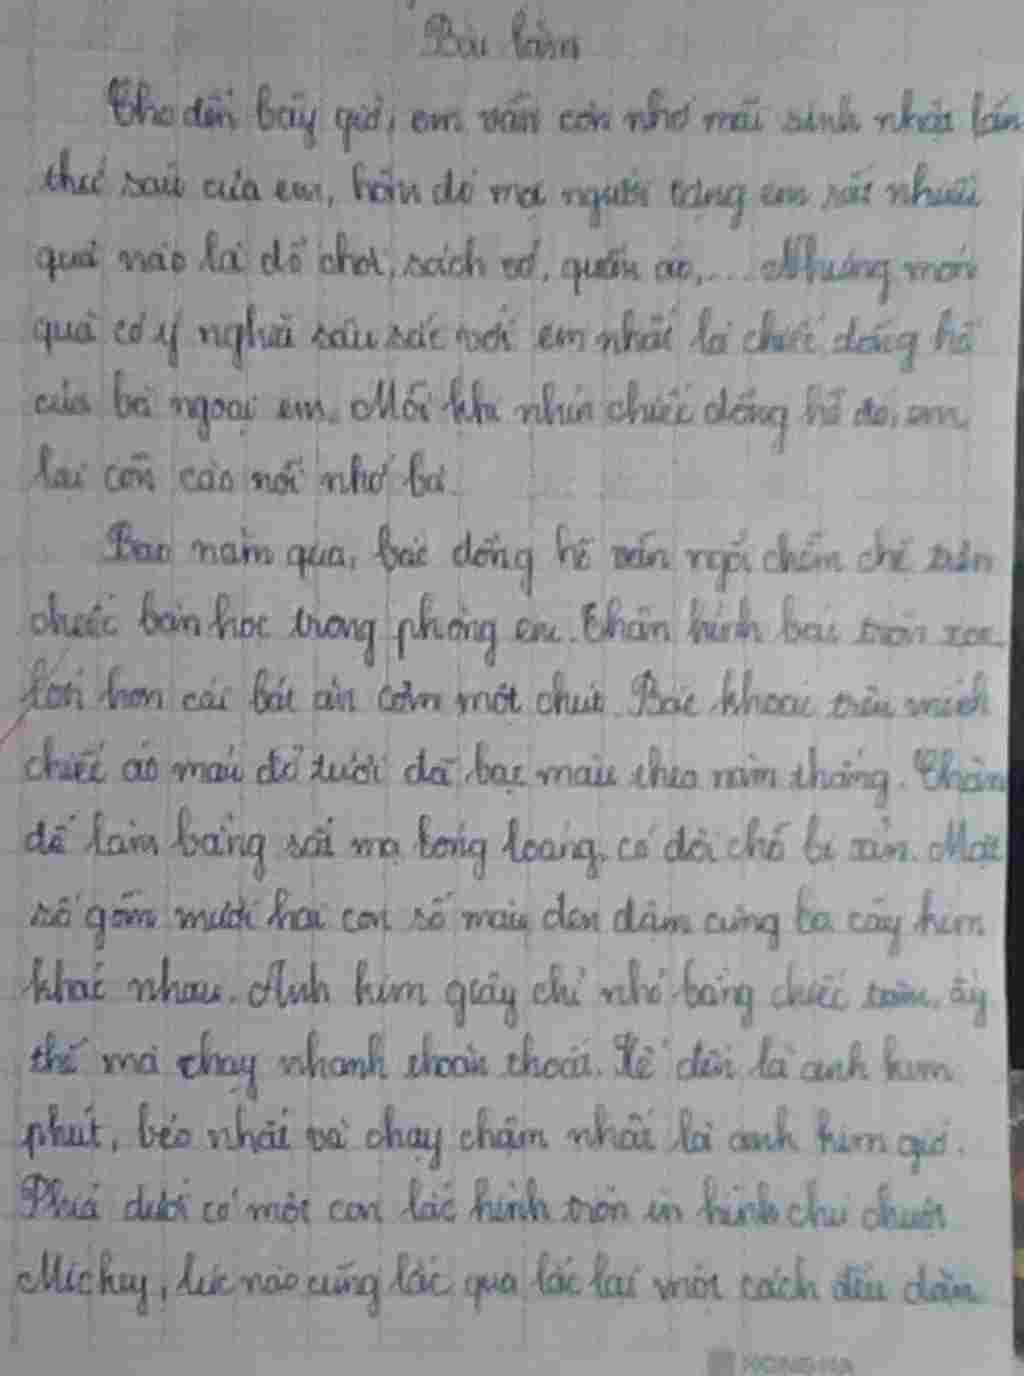 Bài làm
Cho đến bây giờ, em vẫn còn nhớ mãi sinh nhật lần
thứ sáu của em, hôm đó mọi người tặng em rất nhiều
quà nào là đồ chơi, sách vở, quần áo,... Nhưng món
quà có ý nghĩa sâu sắc với em nhất là chiếc đồng hồ
của bà ngoại em. Mỗi khi nhìn chiếc đồng hồ đó, em
lại cồn cào nỗi nhớ bà.
Bao năm qua, bác đồng hồ vẫn ngồi chễm chệ trên
chiếc bàn học trong phòng em. Thân hình bác tròn xoe
lớn hơn cái bát ăn cơm một chút. Bác khoác trên mình
chiếc áo màu đỏ tươi đã bạc màu theo năm tháng. Chân
đế làm bằng sắt mạ bóng loáng, có đôi chỗ bị sờn. Mặt
số gồm mười hai con số màu đen đậm cùng ba cây kim
khác nhau. Anh kim giây chỉ nhỏ bằng chiếc tăm, ấy
thế mà chạy nhanh thoăn thoắt. Kế đến là anh kim
phút, béo nhất và chạy chậm nhất là anh kim giờ.
Phía dưới có một con lắc hình tròn in hình chú chuột
Mickey, lúc nào cũng lắc qua lắc lại một cách đều đặn
HONG HA